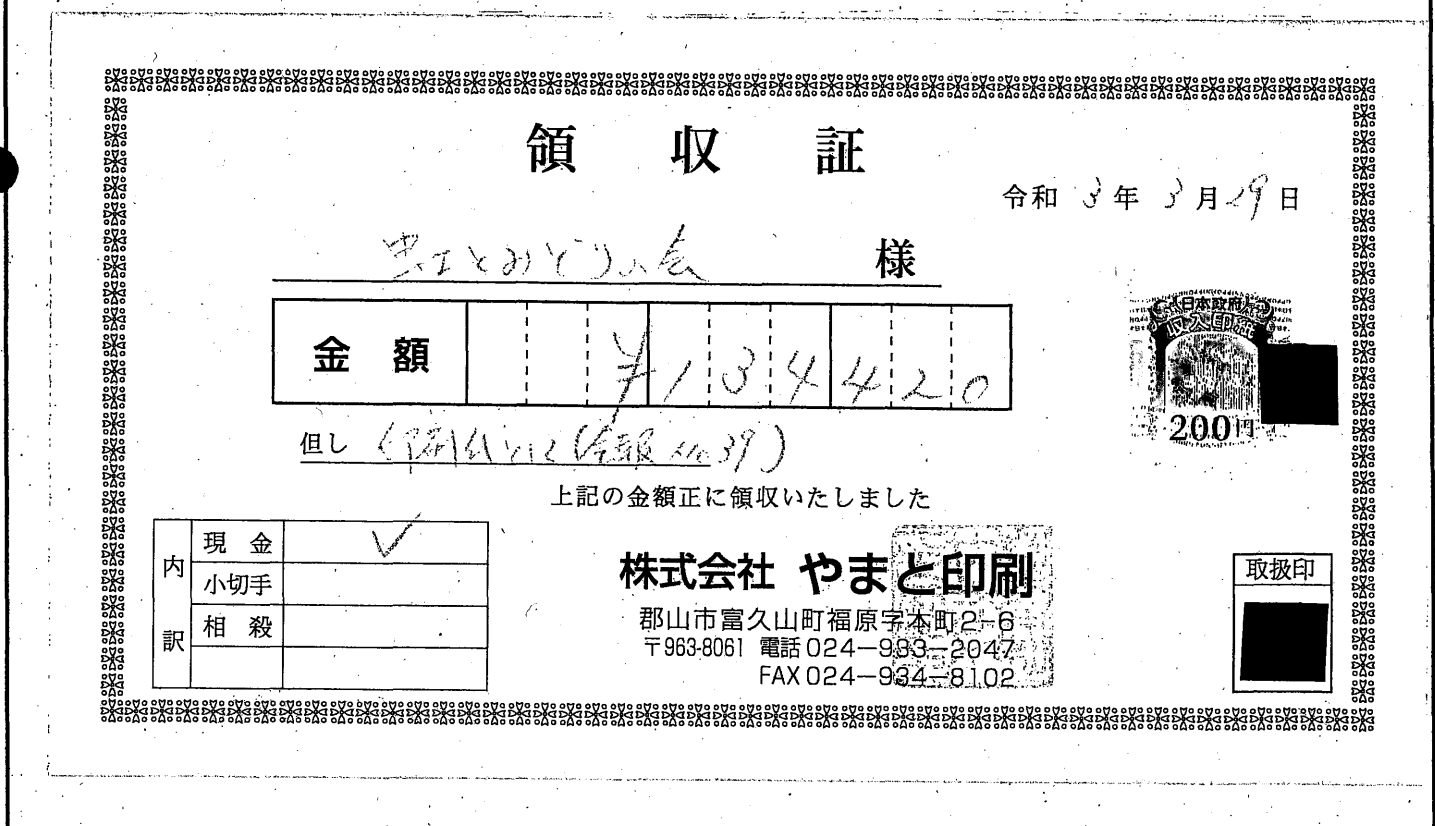 領収証
令和 3年 3月29日
とみどりの会 様
日本政府
収入印紙
200円
金額 ¥134420
但し 印刷代として(会報 No39)
上記の金額正に領収いたしました
内訳
現金 ✓
小切手
相殺
株式会社 やまと印刷
郡山市富久山町福原字本町2-6
〒963-8061 電話024-933-2047
FAX 024-934-8102
取扱印